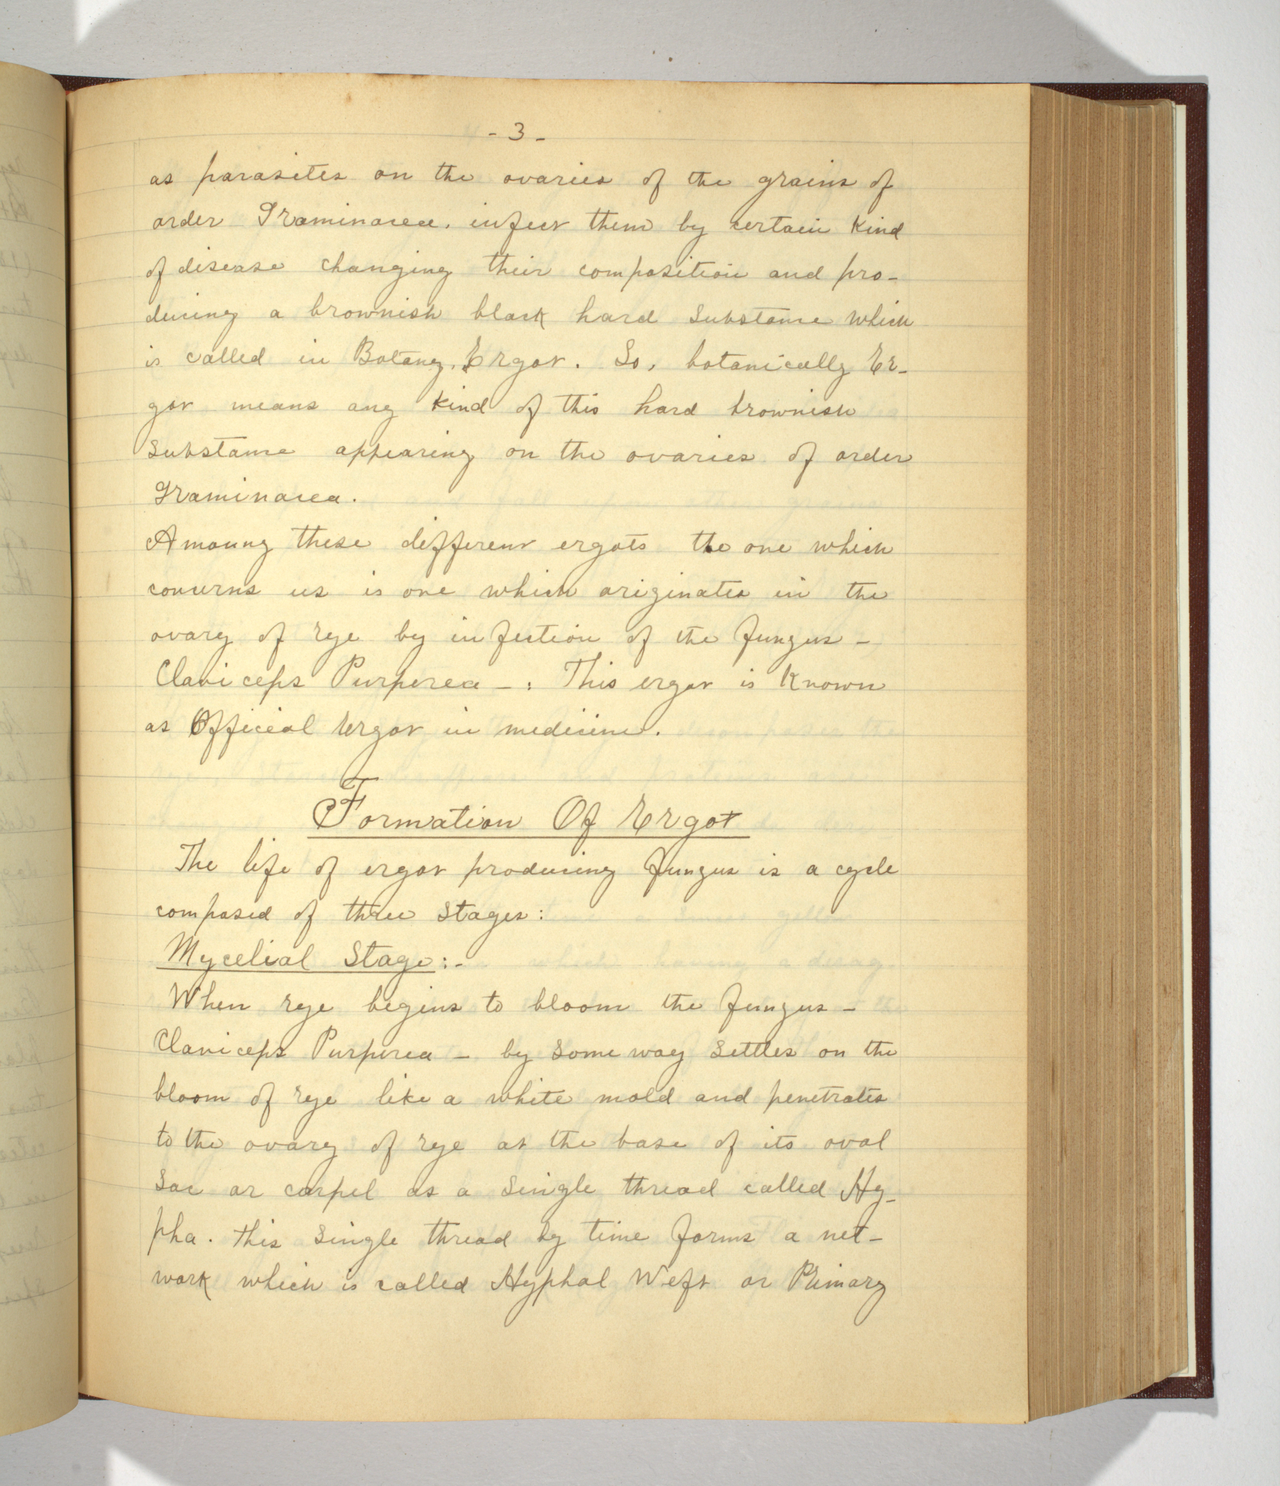 - 3 -
as parasites on the ovaries of the grains of
order Graminacea, infect them by certain kind
of disease changing their composition and pro-
ducing a brownish black hard substance which
is called in Botany, Ergot. So, botanically Er-
got means any kind of this hard brownish
substance appearing on the ovaries of order
Graminacea.
Amoung these different ergots the one which
concerns us is one which originates in the
ovary of rye by infection of the fungus -
Claviceps Purperea - : This ergot is known
as Official Ergot in medicine.
Formation Of Ergot
The life of ergot producing fungus is a cycle
composed of three stages:
Mycelial Stage:-
When rye begins to bloom the fungus -
Claviceps Purperea - by some way settles on the
bloom of rye like a white mold and penetrates
to the ovary of rye at the base of its oval
sac or carpel as a single thread called Hy-
pha. this single thread by time forms a net-
work which is called Hyphal Weft or Primary